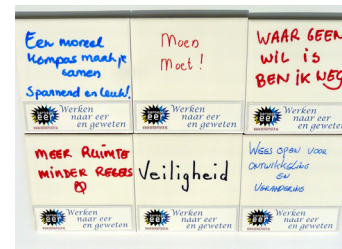 Een moreel
kompas maak je
samen
Spannend en leuk!
eer
Werken
naar eer
en geweten
Moed
Moet!
eer
Werken
naar eer
en geweten
WAAR GEEN
WIL IS
BEN iK WEG
eer
Werken
naar eer
en geweten
MEER RUIMTE
MINDER REGELS
eer
Werken
naar eer
en geweten
Veiligheid
eer
Werken
naar eer
en geweten
WEES OPEN VOOR
ONTWIKKELING
EN
VERANDERING
eer
Werken
naar eer
en geweten